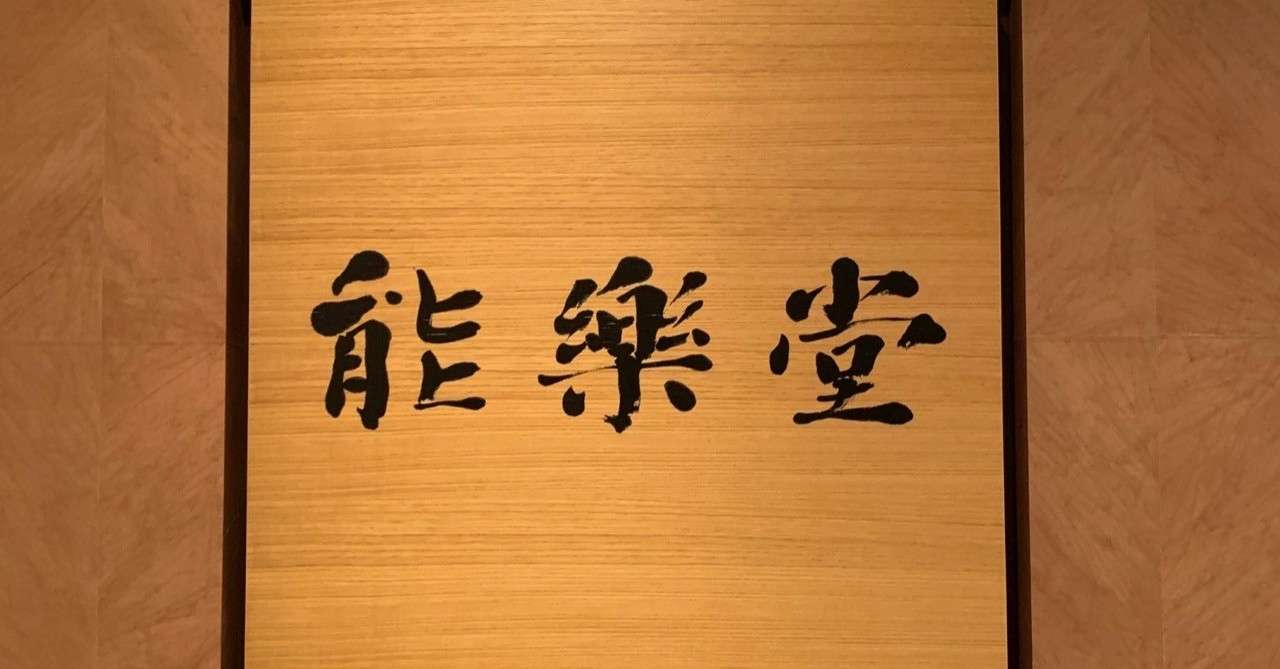 能樂堂